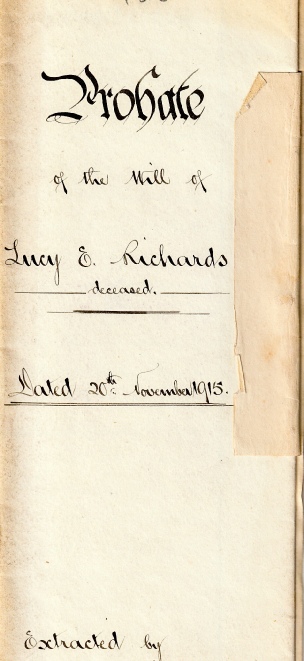 Probate
of the Will of
Lucy E. Richards
deceased.
Dated 20th November 1915.
Extracted by